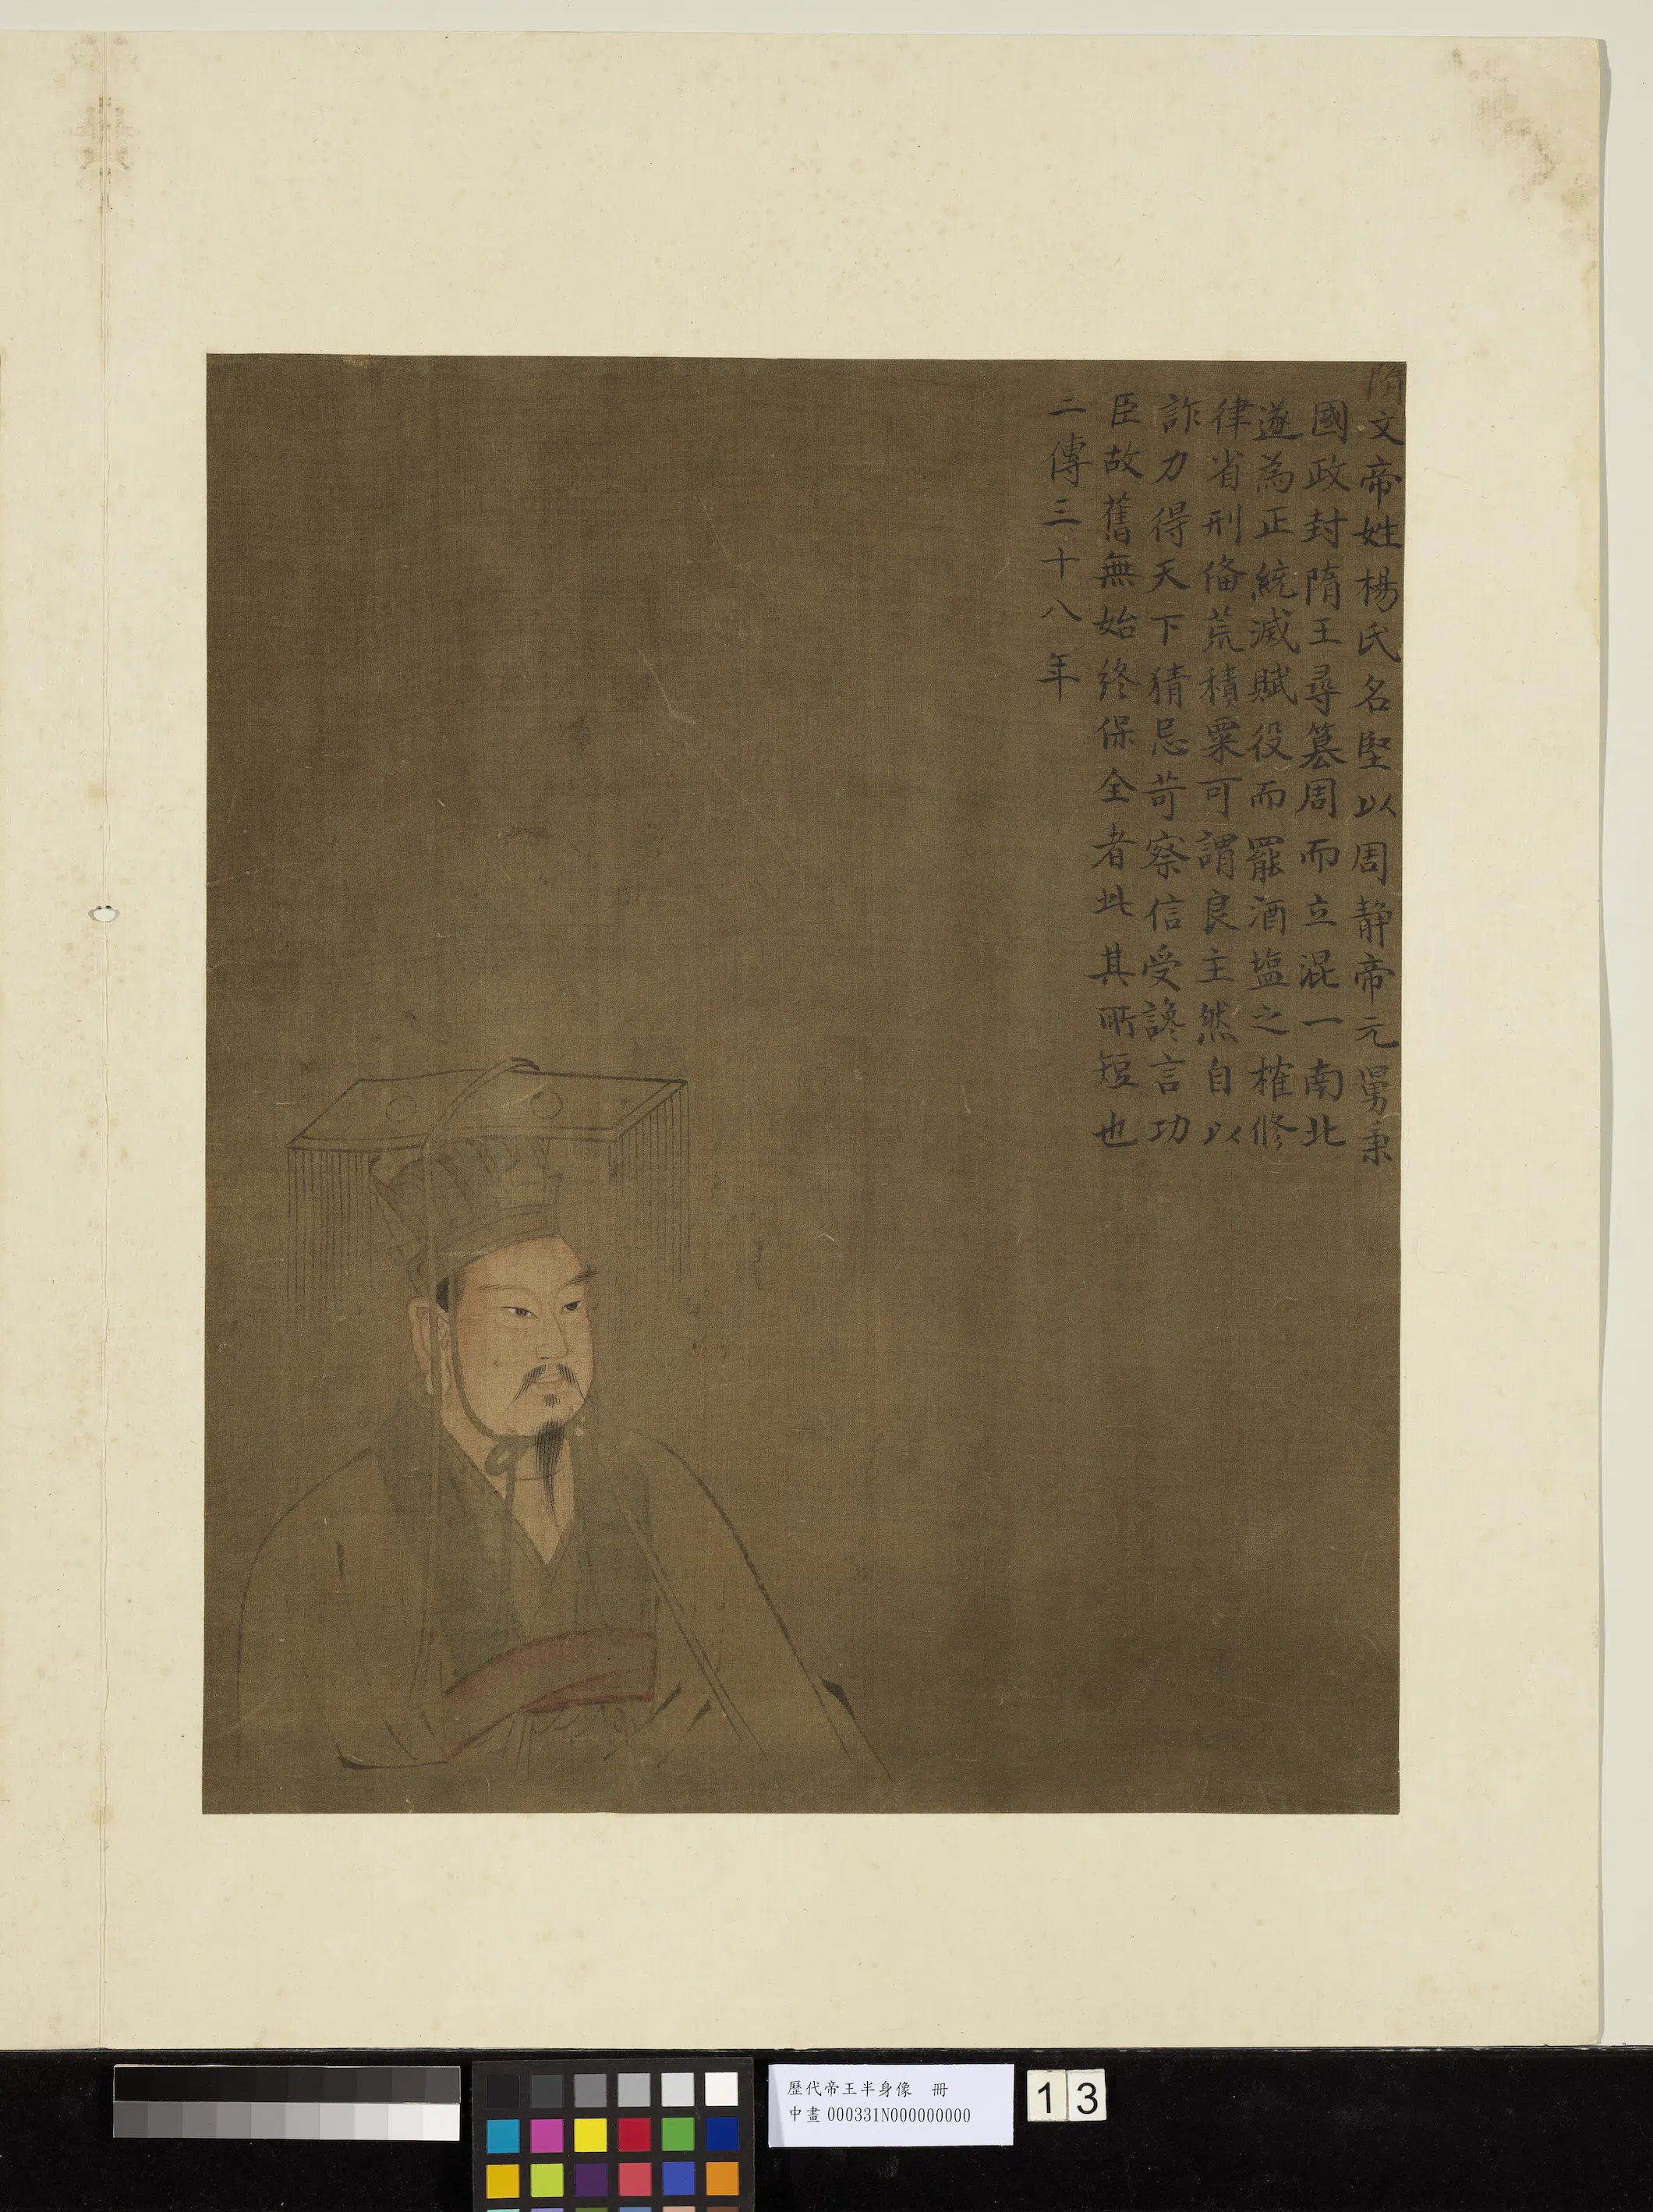 隋文帝姓楊氏名堅以周靜帝元舅秉
國政封隋王尋篡周而立混一南北
遂為正統減賦役而罷酒塩之榷修
律省刑俻荒積粟可謂良主然自以
詐力得天下猜忌苛察信受讒言功
臣故舊無始終保全者此其所短也
二傳三十八年
歷代帝王半身像 冊
中畫 000331N000000000
13